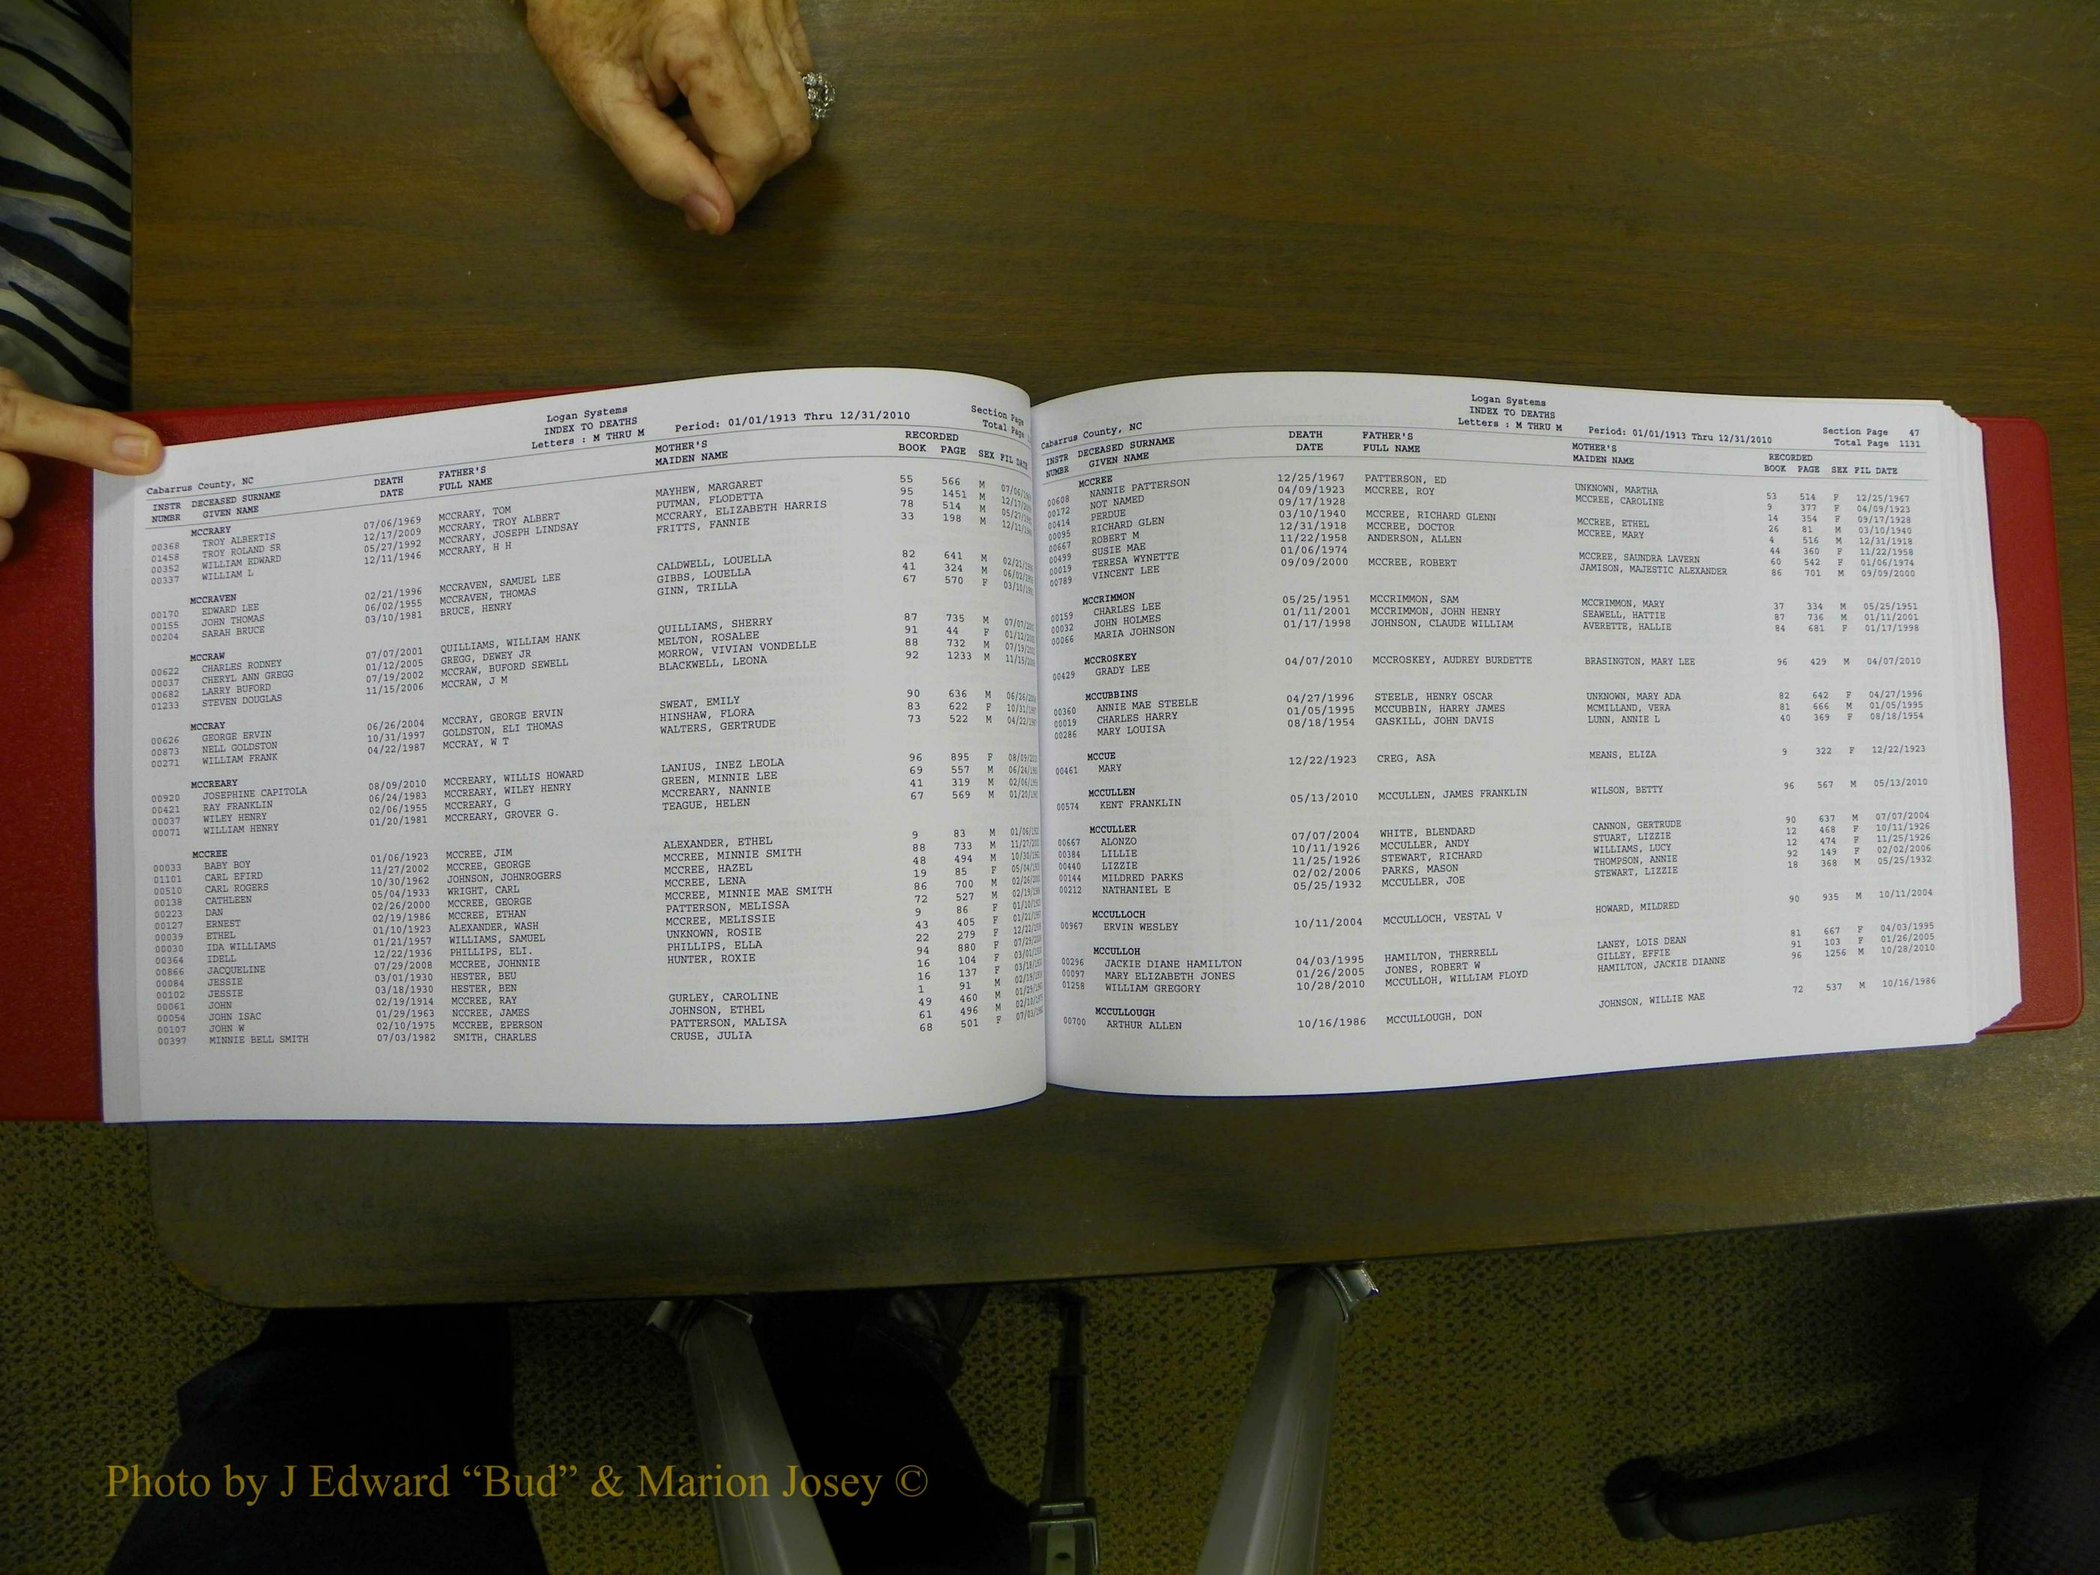 Logan Systems
INDEX TO DEATHS
Letters : M THRU M
Cabarrus County, NC Period: 01/01/1913 Thru 12/31/2010 Section Page
Total Page
INSTR DECEASED SURNAME DEATH FATHER'S MOTHER'S RECORDED
NUMBR GIVEN NAME DATE FULL NAME MAIDEN NAME BOOK PAGE SEX FIL DATE
MCCRARY
00368 TROY ALBERTIS 07/06/1969 MCCRARY, TOM MAYHEW, MARGARET 55 566 M
01458 TROY ROLAND SR 12/17/2009 MCCRARY, TROY ALBERT PUTMAN, FLODETTA 95 1451 M
00352 WILLIAM EDWARD 05/27/1992 MCCRARY, JOSEPH LINDSAY MCCRARY, ELIZABETH HARRIS 78 514 M
00337 WILLIAM L 12/11/1946 MCCRARY, H H FRITTS, FANNIE 33 198 M
MCCRAVEN
00170 EDWARD LEE 02/21/1996 MCCRAVEN, SAMUEL LEE CALDWELL, LOUELLA 82 641 M
00155 JOHN THOMAS 06/02/1955 MCCRAVEN, THOMAS GIBBS, LOUELLA 41 324 M
00204 SARAH BRUCE 03/10/1981 BRUCE, HENRY GINN, TRILLA 67 570 F
MCCRAW
00622 CHARLES RODNEY 07/07/2001 QUILLIAMS, WILLIAM HANK QUILLIAMS, SHERRY 87 735 M
00037 CHERYL ANN GREGG 01/12/2005 GREGG, DEWEY JR MELTON, ROSALEE 91 44 F
00682 LARRY BUFORD 07/19/2002 MCCRAW, BUFORD SEWELL MORROW, VIVIAN VONDELLE 88 732 M
01233 STEVEN DOUGLAS 11/15/2006 MCCRAW, J M BLACKWELL, LEONA 92 1233 M
MCCRAY
00626 GEORGE ERVIN 06/26/2004 MCCRAY, GEORGE ERVIN SWEAT, EMILY 90 636 M
00873 NELL GOLDSTON 10/31/1997 GOLDSTON, ELI THOMAS HINSHAW, FLORA 83 622 F
00271 WILLIAM FRANK 04/22/1987 MCCRAY, W T WALTERS, GERTRUDE 73 522 M
MCCREARY
00920 JOSEPHINE CAPITOLA 08/09/2010 MCCREARY, WILLIS HOWARD LANIUS, INEZ LEOLA 96 895 F
00421 RAY FRANKLIN 06/24/1983 MCCREARY, WILEY HENRY GREEN, MINNIE LEE 69 557 M
00037 WILEY HENRY 02/06/1955 MCCREARY, G MCCREARY, NANNIE 41 319 M
00071 WILLIAM HENRY 01/20/1981 MCCREARY, GROVER G. TEAGUE, HELEN 67 569 M
MCCREE
00033 BABY BOY 01/06/1923 MCCREE, JIM ALEXANDER, ETHEL 9 83 M
01101 CARL EFIRD 11/27/2002 MCCREE, GEORGE MCCREE, MINNIE SMITH 88 733 M
00510 CARL ROGERS 10/30/1962 JOHNSON, JOHNROGERS MCCREE, HAZEL 48 494 M
00138 CATHLEEN 05/04/1933 WRIGHT, CARL MCCREE, LENA 19 85 F
00223 DAN 02/26/2000 MCCREE, GEORGE MCCREE, MINNIE MAE SMITH 86 700 M
00127 ERNEST 02/19/1986 MCCREE, ETHAN PATTERSON, MELISSA 72 527 M
00039 ETHEL 01/10/1923 ALEXANDER, WASH MCCREE, MELISSIE 9 86 F
00030 IDA WILLIAMS 01/21/1957 WILLIAMS, SAMUEL UNKNOWN, ROSIE 43 405 F
00364 IDELL 12/22/1936 PHILLIPS, ELI. PHILLIPS, ELLA 22 279 F
00866 JACQUELINE 07/29/2008 MCCREE, JOHNNIE HUNTER, ROXIE 94 880 F
00084 JESSIE 03/01/1930 HESTER, BEU 16 104 F
00102 JESSIE 03/18/1930 HESTER, BEN 16 137 F
00061 JOHN 02/19/1914 MCCREE, RAY GURLEY, CAROLINE 1 91 M
00054 JOHN ISAC 01/29/1963 NCCREE, JAMES JOHNSON, ETHEL 49 460 M
00107 JOHN W 02/10/1975 MCCREE, EPERSON PATTERSON, MALISA 61 496 M
00397 MINNIE BELL SMITH 07/03/1982 SMITH, CHARLES CRUSE, JULIA 68 501 F
Logan Systems
INDEX TO DEATHS
Letters : M THRU M
Cabarrus County, NC Period: 01/01/1913 Thru 12/31/2010 Section Page 47
Total Page 1131
INSTR DECEASED SURNAME DEATH FATHER'S MOTHER'S RECORDED
NUMBR GIVEN NAME DATE FULL NAME MAIDEN NAME BOOK PAGE SEX FIL DATE
MCCREE
00608 NANNIE PATTERSON 12/25/1967 PATTERSON, ED UNKNOWN, MARTHA 53 514 F 12/25/1967
00172 NOT NAMED 04/09/1923 MCCREE, ROY MCCREE, CAROLINE 9 377 F 04/09/1923
00414 PERDUE 09/17/1928 14 354 F 09/17/1928
00095 RICHARD GLEN 03/10/1940 MCCREE, RICHARD GLENN MCCREE, ETHEL 26 81 M 03/10/1940
00667 ROBERT M 12/31/1918 MCCREE, DOCTOR MCCREE, MARY 4 516 M 12/31/1918
00499 SUSIE MAE 11/22/1958 ANDERSON, ALLEN 44 360 F 11/22/1958
00019 TERESA WYNETTE 01/06/1974 MCCREE, SAUNDRA LAVERN 60 542 F 01/06/1974
00789 VINCENT LEE 09/09/2000 MCCREE, ROBERT JAMISON, MAJESTIC ALEXANDER 86 701 M 09/09/2000
MCCRIMMON
00159 CHARLES LEE 05/25/1951 MCCRIMMON, SAM MCCRIMMON, MARY 37 334 M 05/25/1951
00032 JOHN HOLMES 01/11/2001 MCCRIMMON, JOHN HENRY SEAWELL, HATTIE 87 736 M 01/11/2001
00066 MARIA JOHNSON 01/17/1998 JOHNSON, CLAUDE WILLIAM AVERETTE, HALLIE 84 681 F 01/17/1998
MCCROSKEY
00429 GRADY LEE 04/07/2010 MCCROSKEY, AUDREY BURDETTE BRASINGTON, MARY LEE 96 429 M 04/07/2010
MCCUBBINS
00360 ANNIE MAE STEELE 04/27/1996 STEELE, HENRY OSCAR UNKNOWN, MARY ADA 82 642 F 04/27/1996
00019 CHARLES HARRY 01/05/1995 MCCUBBIN, HARRY JAMES MCMILLAND, VERA 81 666 M 01/05/1995
00286 MARY LOUISA 08/18/1954 GASKILL, JOHN DAVIS LUNN, ANNIE L 40 369 F 08/18/1954
MCCUE
00461 MARY 12/22/1923 CREG, ASA MEANS, ELIZA 9 322 F 12/22/1923
MCCULLEN
00574 KENT FRANKLIN 05/13/2010 MCCULLEN, JAMES FRANKLIN WILSON, BETTY 96 567 M 05/13/2010
MCCULLER
00667 ALONZO 07/07/2004 WHITE, BLENDARD CANNON, GERTRUDE 90 637 M 07/07/2004
00384 LILLIE 10/11/1926 MCCULLER, ANDY STUART, LIZZIE 12 468 F 10/11/1926
00440 LIZZIE 11/25/1926 STEWART, RICHARD WILLIAMS, LUCY 12 474 F 11/25/1926
00144 MILDRED PARKS 02/02/2006 PARKS, MASON THOMPSON, ANNIE 92 149 F 02/02/2006
00212 NATHANIEL E 05/25/1932 MCCULLER, JOE STEWART, LIZZIE 18 368 M 05/25/1932
MCCULLOCH
00967 ERVIN WESLEY 10/11/2004 MCCULLOCH, VESTAL V HOWARD, MILDRED 90 935 M 10/11/2004
MCCULLOH
00296 JACKIE DIANE HAMILTON 04/03/1995 HAMILTON, THERRELL LANEY, LOIS DEAN 81 667 F 04/03/1995
00097 MARY ELIZABETH JONES 01/26/2005 JONES, ROBERT W GILLEY, EFFIE 91 103 F 01/26/2005
01258 WILLIAM GREGORY 10/28/2010 MCCULLOH, WILLIAM FLOYD HAMILTON, JACKIE DIANNE 96 1256 M 10/28/2010
MCCULLOUGH
00700 ARTHUR ALLEN 10/16/1986 MCCULLOUGH, DON JOHNSON, WILLIE MAE 72 537 M 10/16/1986
Photo by J Edward “Bud” & Marion Josey ©